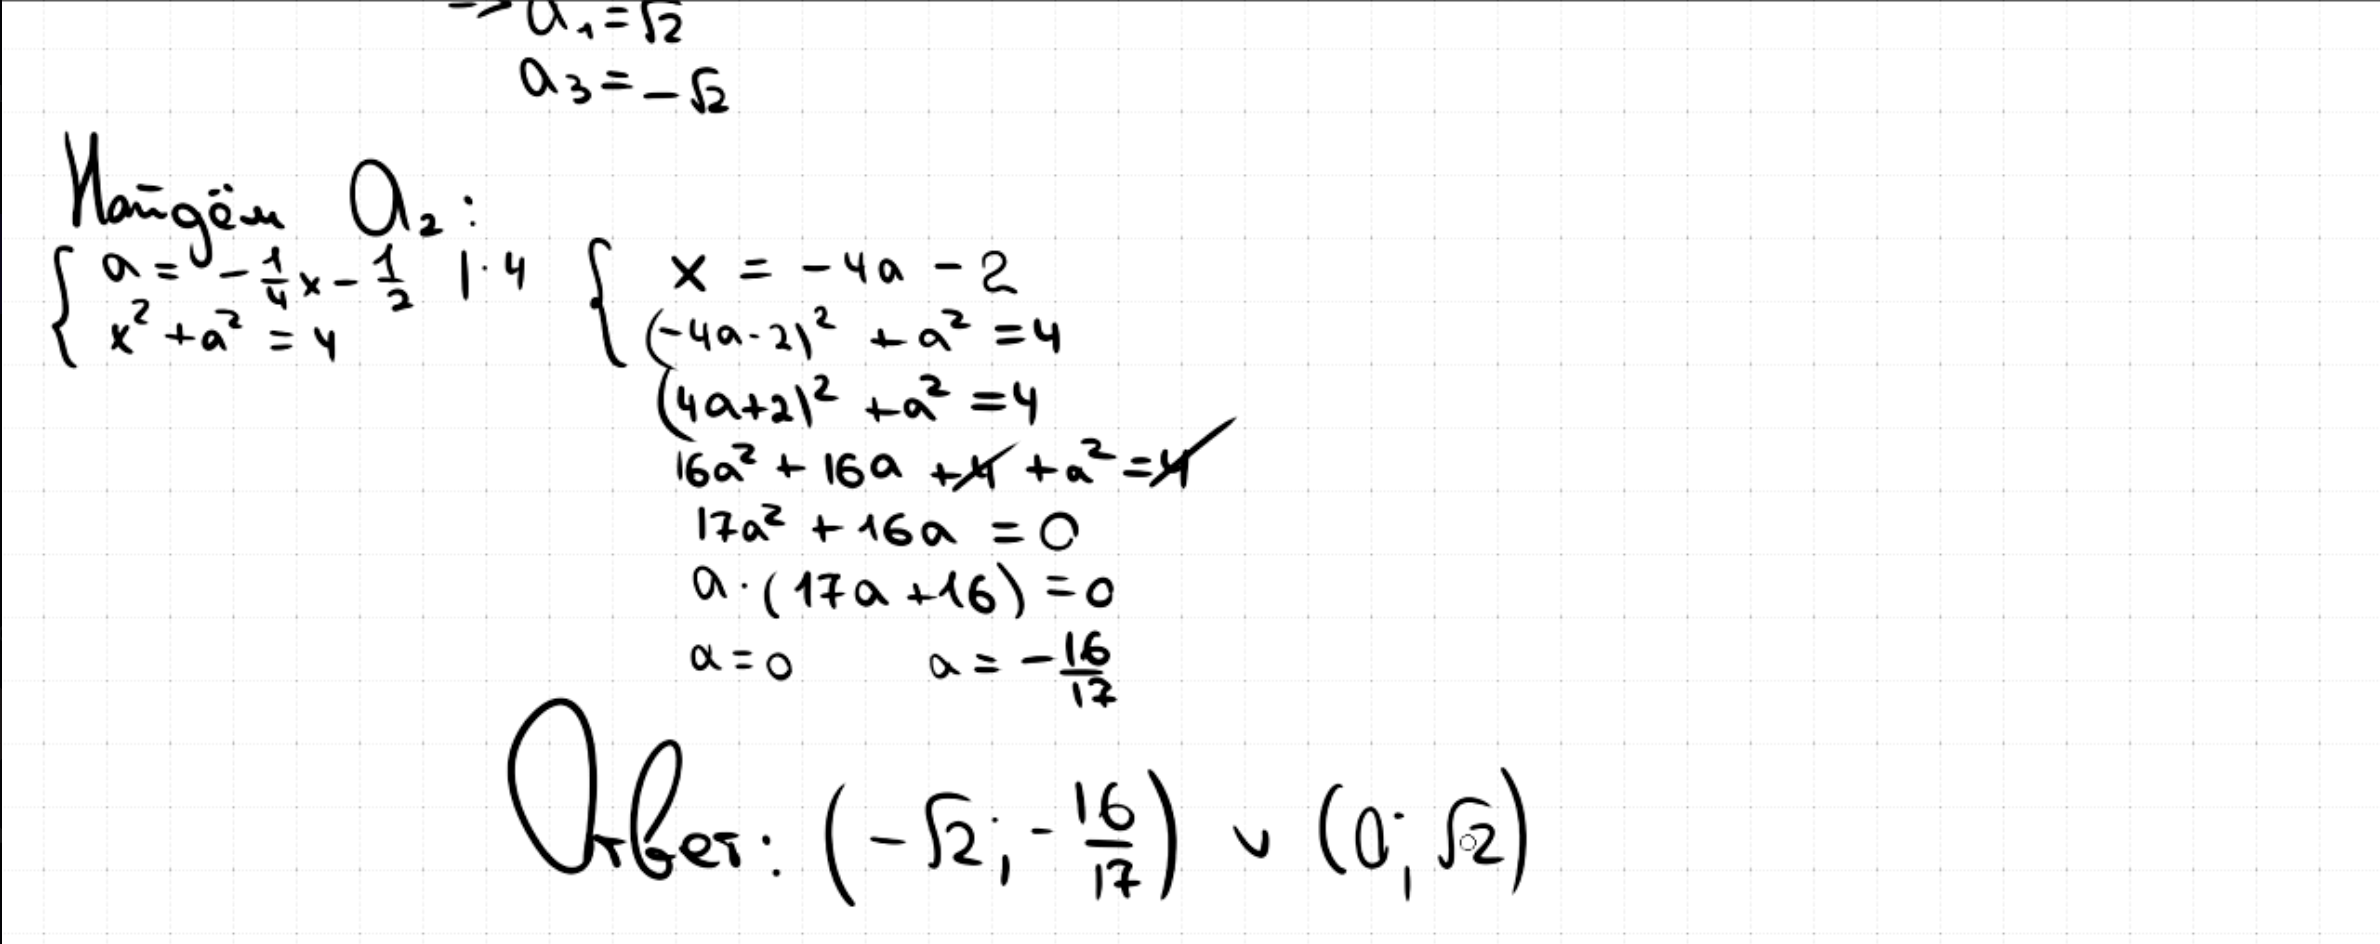 => a₁ = √2
a₃ = -√2
Найдём a₂:
{ a = -1/4 x - 1/2 | · 4
x² + a² = 4
{ x = -4a - 2
(-4a - 2)² + a² = 4
(4a + 2)² + a² = 4
16a² + 16a + 4 + a² = 4
17a² + 16a = 0
a · (17a + 16) = 0
a = 0 a = -16/17
Ответ: (-√2; -16/17) ∪ (0; √2)